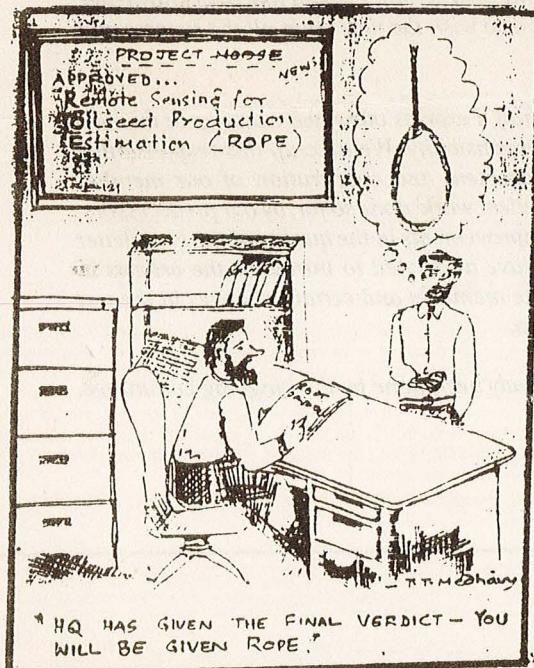 PROJECT NOOSE
NEWS
APPROVED...
Remote Sensing for
Oilseed Production
Estimation (ROPE)
"HQ HAS GIVEN THE FINAL VERDICT — YOU
WILL BE GIVEN ROPE."